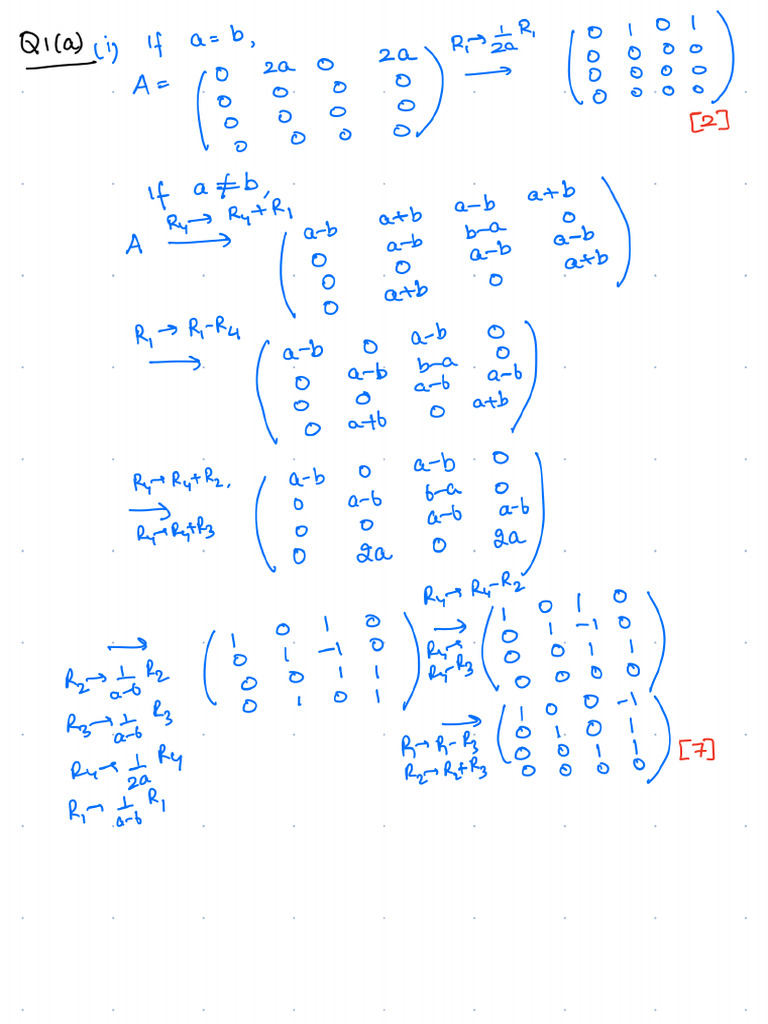 Q1(a) (i) If a = b,
A = ( 0 2a 0 2a R₁→ 1/2a R₁ ( 0 1 0 1
0 0 0 0 ⟶ 0 0 0 0
0 0 0 0 0 0 0 0
0 0 0 0 ) 0 0 0 0 )
[2]
If a ≠ b,
A R₄→ R₄+R₁ ⟶ ( a-b a+b a-b a+b
0 a-b b-a 0
0 0 a-b a-b
0 a+b 0 a+b )
R₁→ R₁-R₄ ⟶ ( a-b 0 a-b 0
0 a-b b-a 0
0 0 a-b a-b
0 a+b 0 a+b )
R₄→R₄+R₂, ⟶ R₄→R₄+R₃ ( a-b 0 a-b 0
0 a-b b-a 0
0 0 a-b a-b
0 2a 0 2a )
⟶
R₂→ 1/a-b R₂
R₃→ 1/a-b R₃
R₄→ 1/2a R₄
R₁→ 1/a-b R₁
( 1 0 1 0
0 1 -1 0
0 0 1 1
0 1 0 1 )
R₄→ R₄-R₂
⟶
R₄→
R₄-R₃
( 1 0 1 0
0 1 -1 0
0 0 1 1
0 0 0 0 )
⟶
R₁→ R₁-R₃
R₂→R₂+R₃
( 1 0 0 -1
0 1 0 1
0 0 1 1
0 0 0 0 )
[7]